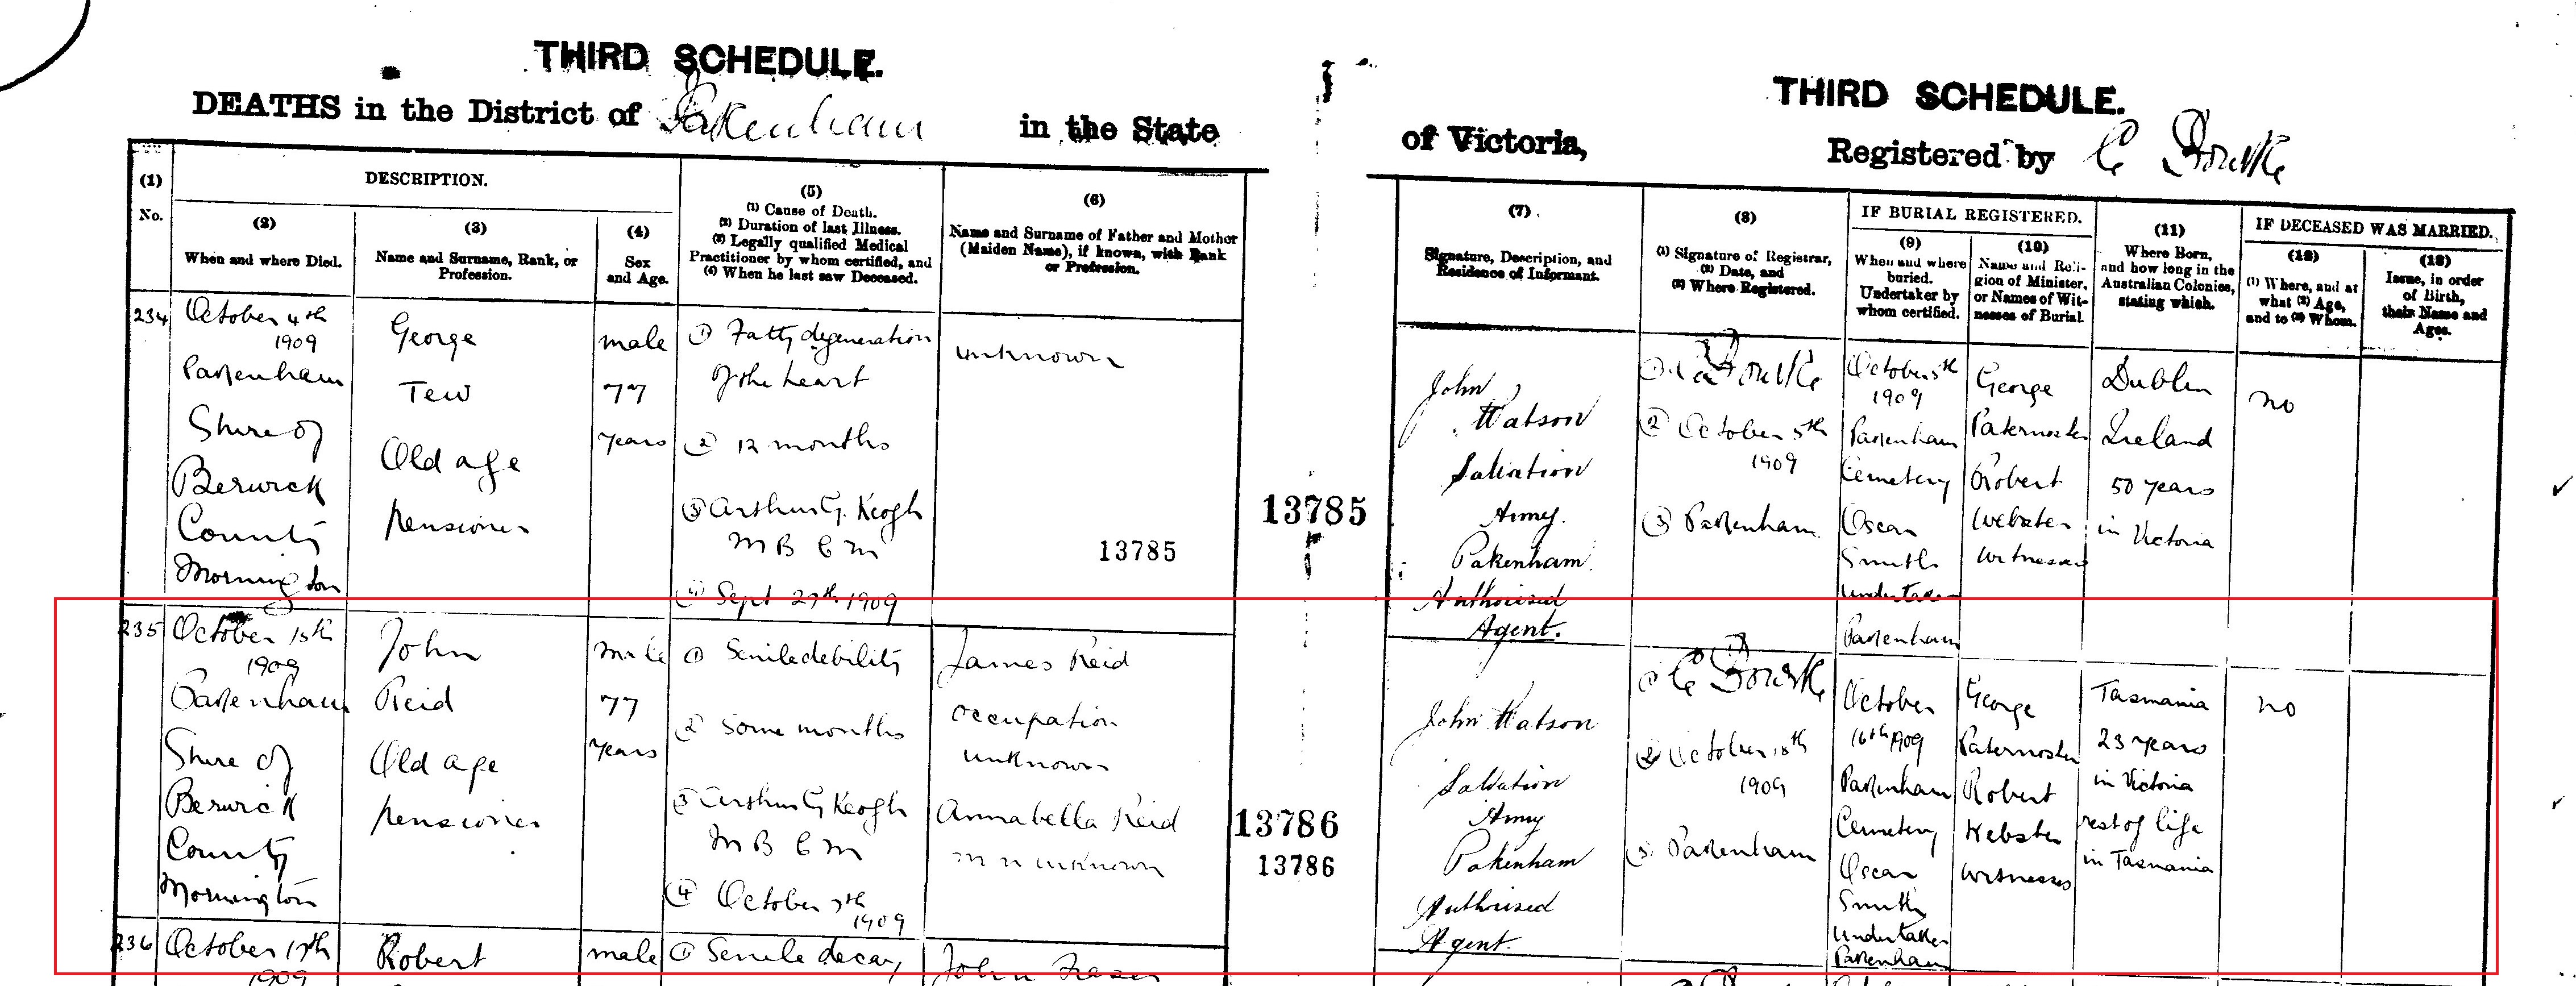 THIRD SCHEDULE.
DEATHS in the District of Pakenham in the State
THIRD SCHEDULE.
of Victoria, Registered by C Bourke
(1)
No.
DESCRIPTION.
(2)
When and where Died.
(3)
Name and Surname, Rank, or
Profession.
(4)
Sex
and Age.
(5)
(1) Cause of Death.
(2) Duration of last Illness.
(3) Legally qualified Medical
Practitioner by whom certified, and
(4) When he last saw Deceased.
(6)
Name and Surname of Father and Mother
(Maiden Name), if known, with Rank
or Profession.
(7)
Signature, Description, and
Residence of Informant.
(8)
(1) Signature of Registrar,
(2) Date, and
(3) Where Registered.
IF BURIAL REGISTERED.
(9)
When and where
buried.
Undertaker by
whom certified.
(10)
Name and Reli-
gion of Minister,
or Names of Wit-
nesses of Burial.
(11)
Where Born,
and how long in the
Australian Colonies,
stating which.
IF DECEASED WAS MARRIED.
(12)
(1) Where, and at
what (2) Age,
and to (3) Whom.
(13)
Issue, in order
of Birth,
their Name and
Ages.
234
October 4th
1909
Pakenham
Shire of
Berwick
County
Mornington
George
Tew
Old age
pensioner
male
77
years
(1) Fatty degeneration
of the heart
(2) 12 months
(3) Arthur G. Keogh
M B C M
(4) Sept 27th 1909
unknown
13785
13785
John
Watson
Salvation
Army.
Pakenham.
Authorised
Agent.
(1) C Bourke
(2) October 5th
1909
(3) Pakenham
October 5th
1909
Pakenham
Cemetery
Oscar
Smith
undertaker
Pakenham
George
Paternoster
Robert
Webster
witnesses
Dublin
Ireland
50 years
in Victoria
no
235
October 15th
1909
Pakenham
Shire of
Berwick
County
Mornington
John
Reid
Old age
pensioner
male
77
years
(1) Senile debility
(2) Some months
(3) Arthur G Keogh
M B C M
(4) October 7th
1909
James Reid
occupation
unknown
Annabella Reid
m n unknown
13786
13786
John Watson
Salvation
Army
Pakenham
Authorised
Agent.
(1) C Bourke
(2) October 18th
1909
(3) Pakenham
October
16th 1909
Pakenham
Cemetery
Oscar
Smith
undertaker
Pakenham
George
Paternoster
Robert
Webster
witnesses
Tasmania
23 years
in Victoria
rest of life
in Tasmania
no
236
October 17th
1909
Robert
male
(1) Senile decay
John Fraser